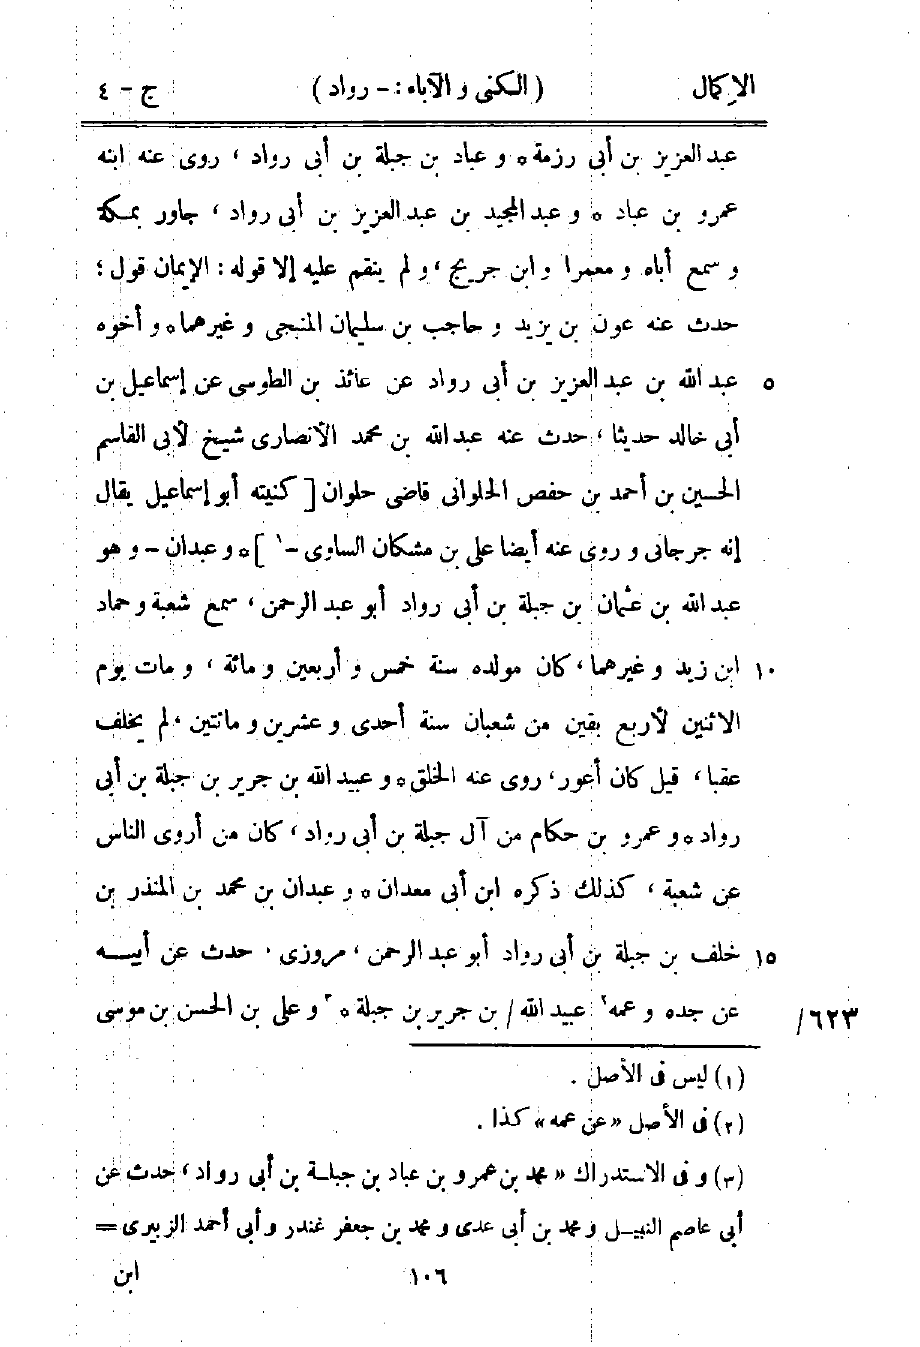 الإكمال ( الكنى و الآباء : - رواد ) ج - ٤
عبد العزيز بن أبى رزمة ه و عباد بن جبلة بن أبى رواد ، روى عنه ابنه
عمرو بن عباد ه و عبد المجيد بن عبد العزيز بن أبى رواد ، جاور بمكة
و سمع أباه و معمرا و ابن جريج ، و لم ينقم عليه إلا قوله : الإيمان قول ؛
حدث عنه عون بن يزيد و حاجب بن سليمان المنبجى و غيرهما ه و أخوه
٥ عبد الله بن عبد العزيز بن أبى رواد عن عائذ بن الطوسى عن إسماعيل بن
أبى خالد حديثا ، حدث عنه عبد الله بن محمد الأنصارى شيخ لأبى القاسم
الحسين بن أحمد بن حفص الحلوانى قاضى حلوان [ كنيته أبو إسماعيل يقال
إنه جرجانى و روى عنه أيضا على بن مشكان الساوى - ١ ] ه و عبدان - و هو
عبد الله بن عثمان بن جبلة بن أبى رواد أبو عبد الرحمن ، سمع شعبة و حماد
١٠ ابن زيد و غيرهما ، كان مولده سنة خمس و أربعين و مائة ، و مات يوم
الاثنين لأربع بقين من شعبان سنة أحدى و عشرين و مائتين ، لم يخلف
عقبا ، قيل كان أعور ، روى عنه الخلق ه و عبيد الله بن جرير بن جبلة بن أبى
رواد ه و عمرو بن حكام من آل جبلة بن أبى رواد ، كان من أروى الناس
عن شعبة ، كذلك ذكره ابن أبى معدان ه و عبدان بن محمد بن المنذر بن
١٥ خلف بن جبلة بن أبى رواد أبو عبد الرحمن ، مروزى . حدث عن أبيه
٦٢٣/ عن جده و عمه ٢ عبيد الله / بن جرير بن جبلة ه ٣ و على بن الحسن بن موسى
(١) ليس فى الأصل .
(٢) فى الأصل « عن عمه » كذا .
(٣) و فى الاستدراك « محمد بن عمرو بن عباد بن جبلة بن أبى رواد ، حدث عن
أبى عاصم النبيل و محمد بن أبى عدى و محمد بن جعفر غندر و أبى أحمد الزبيرى =
١٠٦ ابن